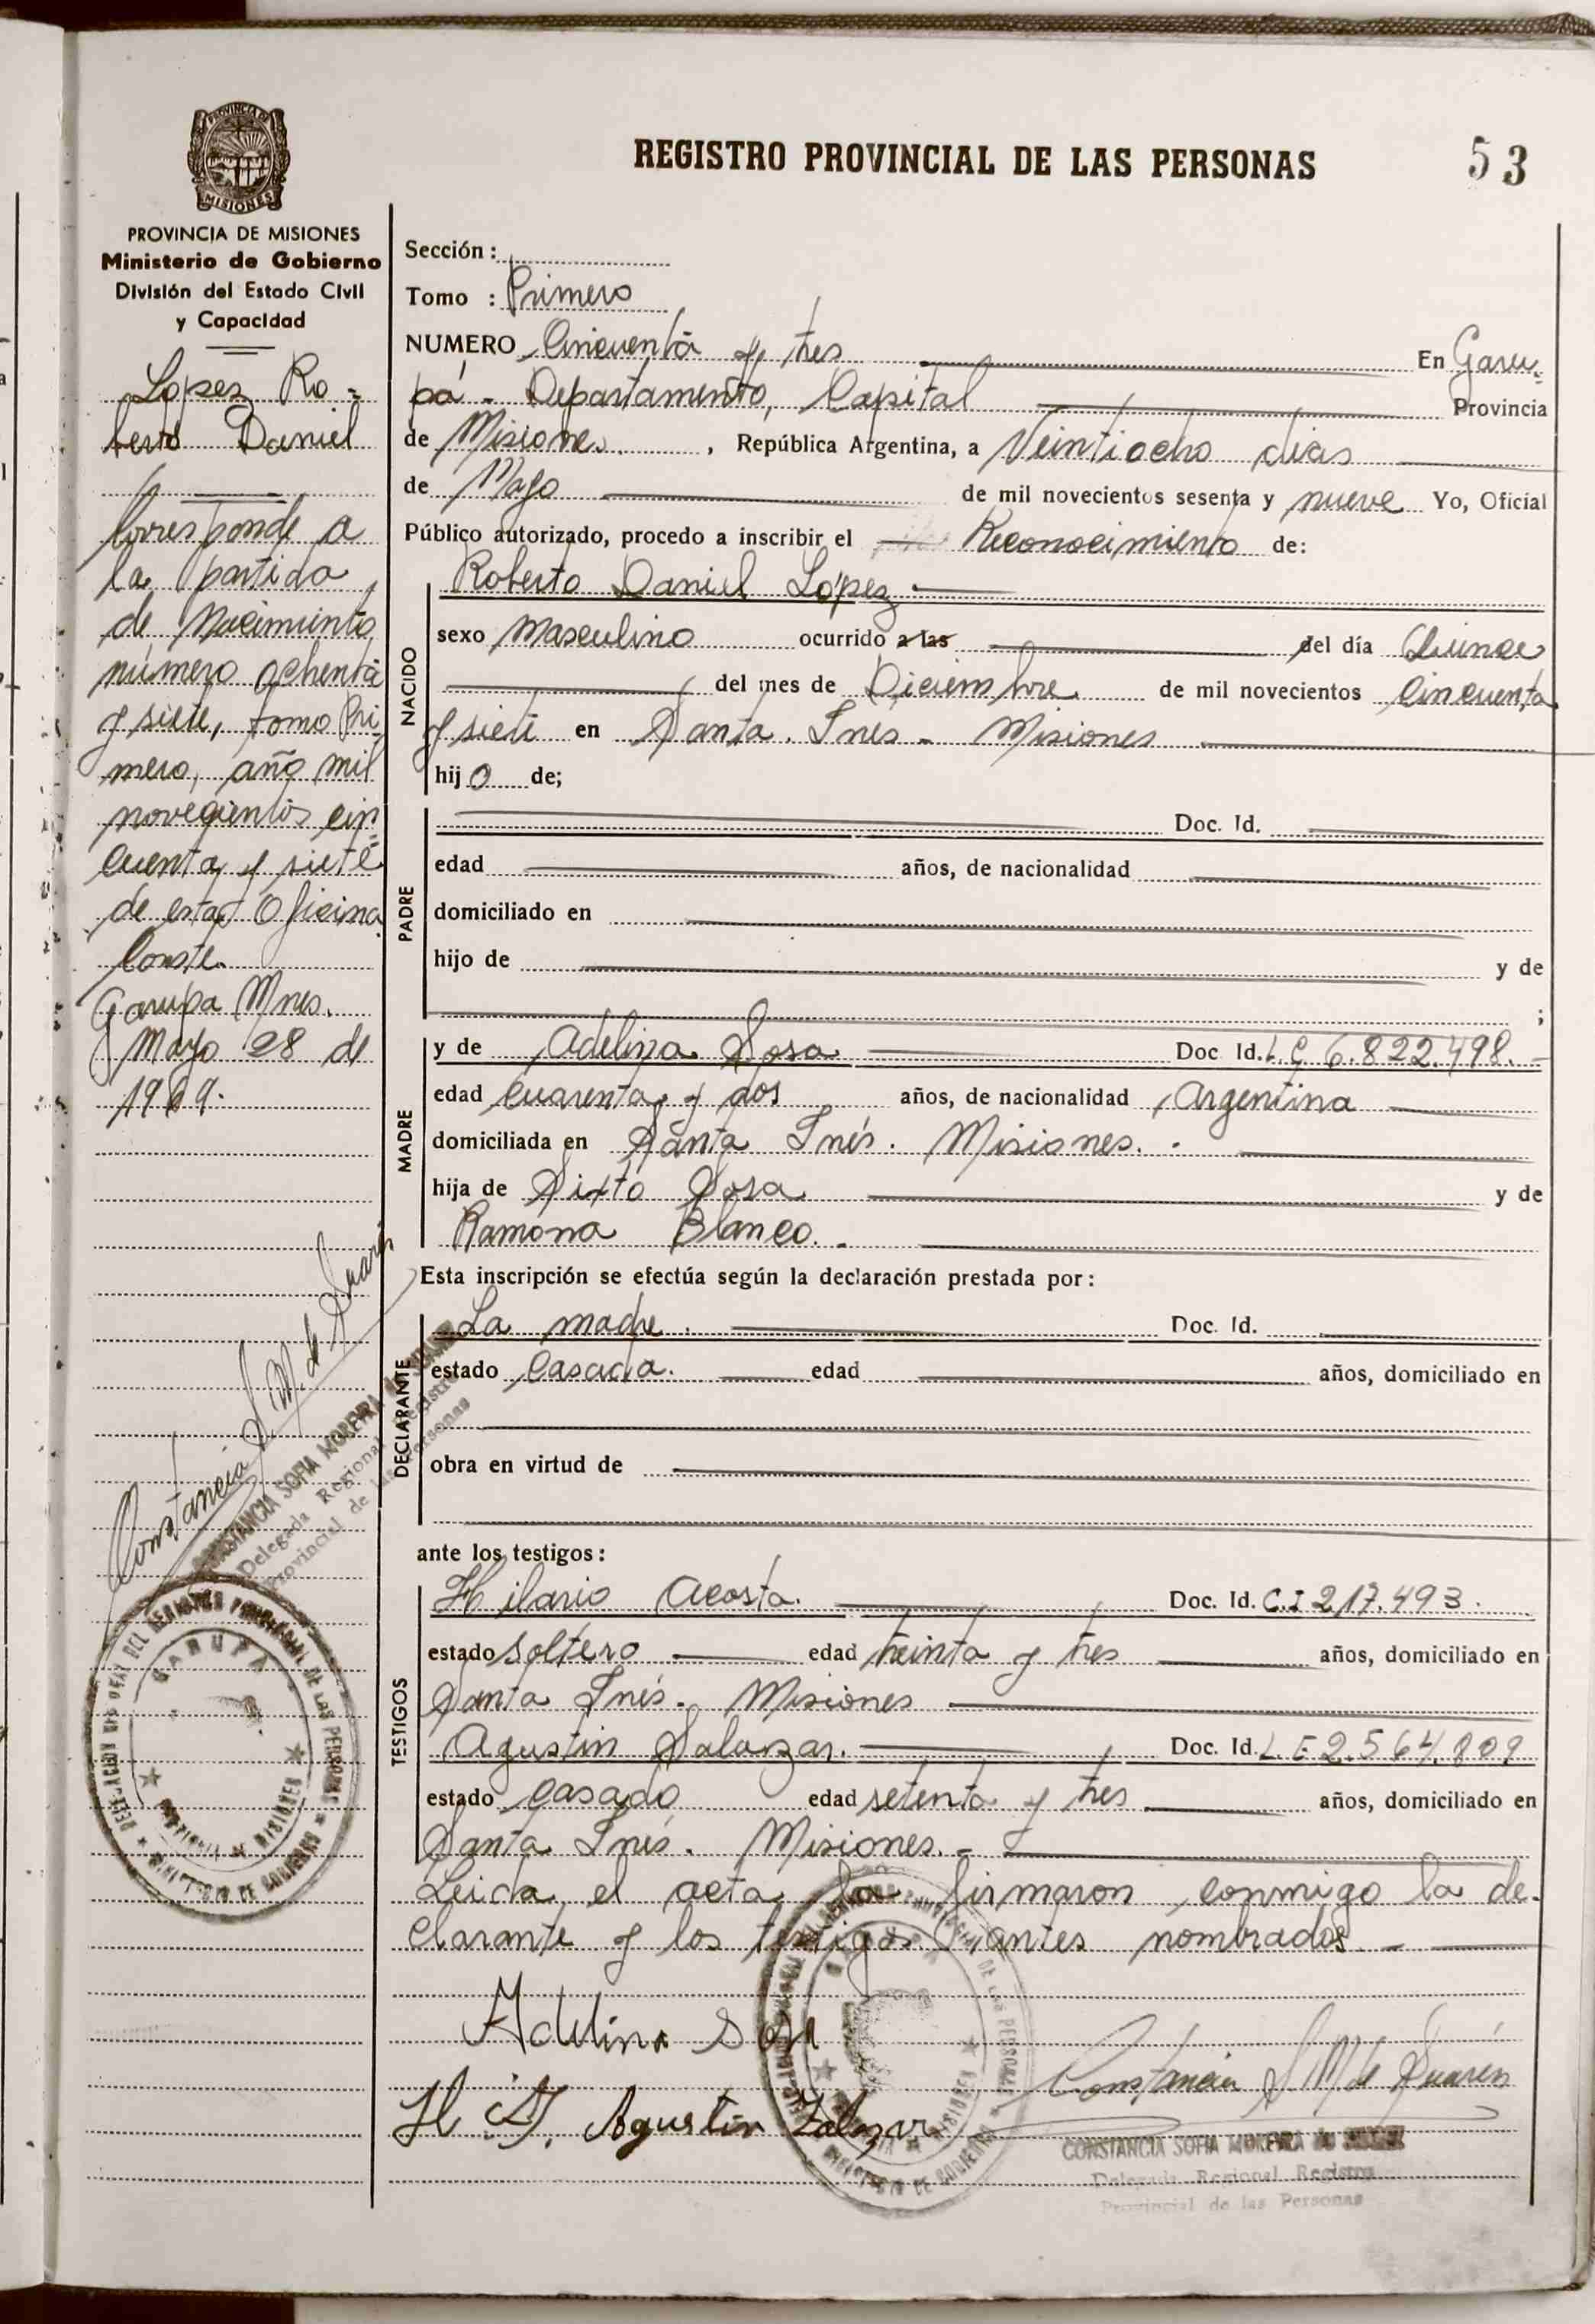 REGISTRO PROVINCIAL DE LAS PERSONAS
53
PROVINCIA DE
MISIONES
PROVINCIA DE MISIONES
Ministerio de Gobierno
División del Estado Civil
y Capacidad
Lopez Ro=
berto Daniel
Corresponde a
la partida
de Nacimiento
número ochenta
y siete, tomo Pri
mero, año mil
novecientos cin
cuenta y siete
de esta Oficina
Conste.
Garupa Mnes.
Mayo 28 de
1969.
Constancia S. M. de Suarez
CONSTANCIA SOFIA MOREYRA
Delegada Regional Registro
Provincial de las Personas
GARUPA
Sección:
Tomo : Primero
NUMERO Cincuenta y tres En Garu-
pá - Departamento, Capital Provincia
de Misiones. , República Argentina, a Veintiocho dias
de Mayo de mil novecientos sesenta y nueve Yo, Oficial
Público autorizado, procedo a inscribir el Reconocimiento de:
NACIDO
Roberto Daniel López
sexo Masculino ocurrido a las del día Quince
del mes de Diciembre de mil novecientos Cincuenta
y siete en Santa Inés - Misiones
hijo de;
PADRE
Doc. Id.
edad años, de nacionalidad
domiciliado en
hijo de y de
;
MADRE
y de Adelina Sosa Doc Id. L.C 6.822.498.
edad Cuarenta y dos años, de nacionalidad Argentina
domiciliada en Santa Inés. Misiones.
hija de Sixto Sosa y de
Ramona Blanco.
Esta inscripción se efectúa según la declaración prestada por:
DECLARANTE
La madre. Doc. Id.
estado Casada. edad años, domiciliado en
obra en virtud de
ante los testigos:
TESTIGOS
Hilario Acosta. Doc. Id. C.I 217.493.
estado soltero edad treinta y tres años, domiciliado en
Santa Inés. Misiones
Agustin Salazar. Doc. Id. L.E 2.564.809
estado casado edad setenta y tres años, domiciliado en
Santa Inés. Misiones. -
Leida el acta la firmaron conmigo la de-
clarante y los testigos antes nombrados -
Adelina Sosa
Agustin Zalazar
Constancia S M de Suarez
CONSTANCIA SOFIA MOREYRA
Delegada Regional Registro
Provincial de las Personas